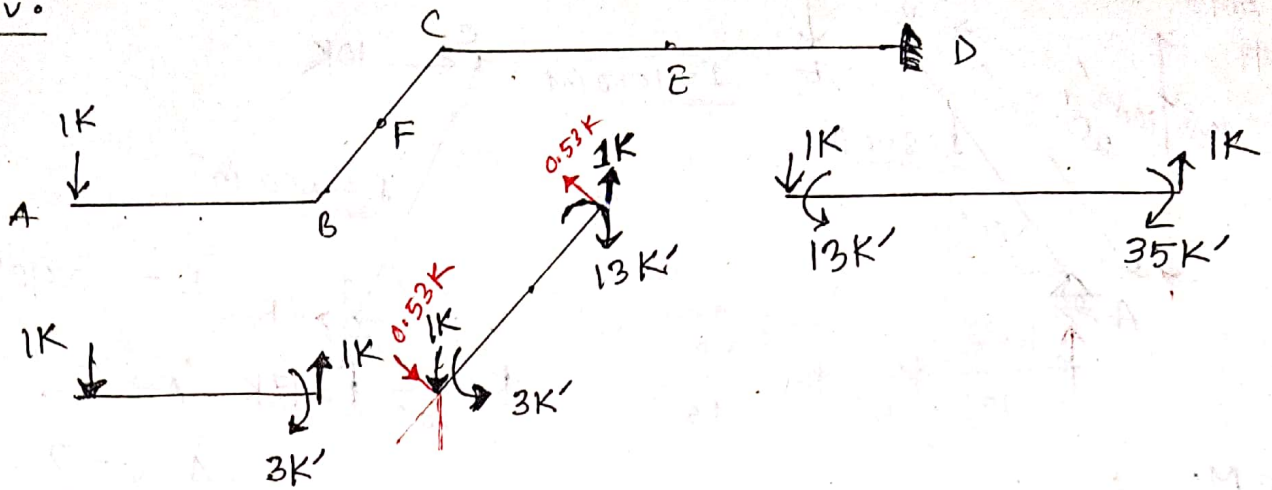 v.
C
D
E
1K
F
A
B
0.53K
1K
13K'
1K
1K
13K'
35K'
1K
1K
3K'
0.53K
1K
3K'